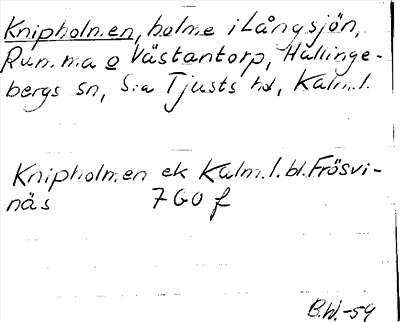 Knipholmen, holme i Långsjön,
Rumma o Västantorp, Hallinge-
bergs sn, S:a Tjusts hd, Kalm.l.
Knipholmen ek Kalm.l.bl. Frösvi-
näs 7 GO f
B.W.-59